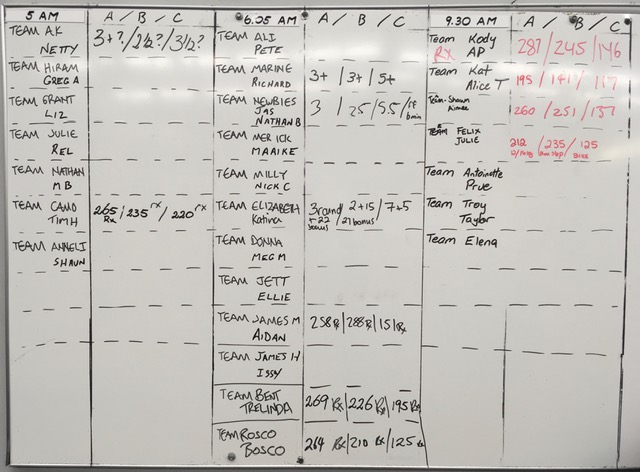 5 AM A / B / C
TEAM AK
NETTY 3+? / 2½? / 3½?
TEAM HIRAM
GREG A
TEAM GRANT
LIZ
TEAM JULIE
REL
TEAM NATHAN
MB
TEAM CAMO 265 / 235 rx / 220 rx
TIM H Rx
TEAM ANNELI
SHAUN
6.05 AM A / B / C
TEAM ALI
PETE
TEAM MARINE 3+ / 3+ / 5+
RICHARD
TEAM NEWBIES 3 / 25 / 5.5
JAS
NATHAN B
TEAM MERICK
MAAIKE
TEAM MILLY
NICK C
TEAM ELIZABETH 3 round / 2+15 / 7+5
Katina +22 21 bonus
bonus
TEAM DONNA
MEG M
TEAM JETT
ELLIE
TEAM JAMES M 258 Rx / 288 Rx / 151 Rx
AIDAN
TEAM JAMES H
ISSY
TEAM BENT 269 Rx / 226 Rx / 195 Rx
TRELINDA
TEAM ROSCO 264 Rx / 210 Rx / 125
BOSCO
9.30 AM A / B / C
Team Kody 287 / 245 / 146
Rx AP
Team Kat 195 / 141 / 117
Alice T
Team Shawn 260 / 251 / 157
Aimee
TEAM FELIX 212 / 235 / 125
JULIE BIKE
Team Antoinette
Prue
Team Troy
Taylor
Team Elena